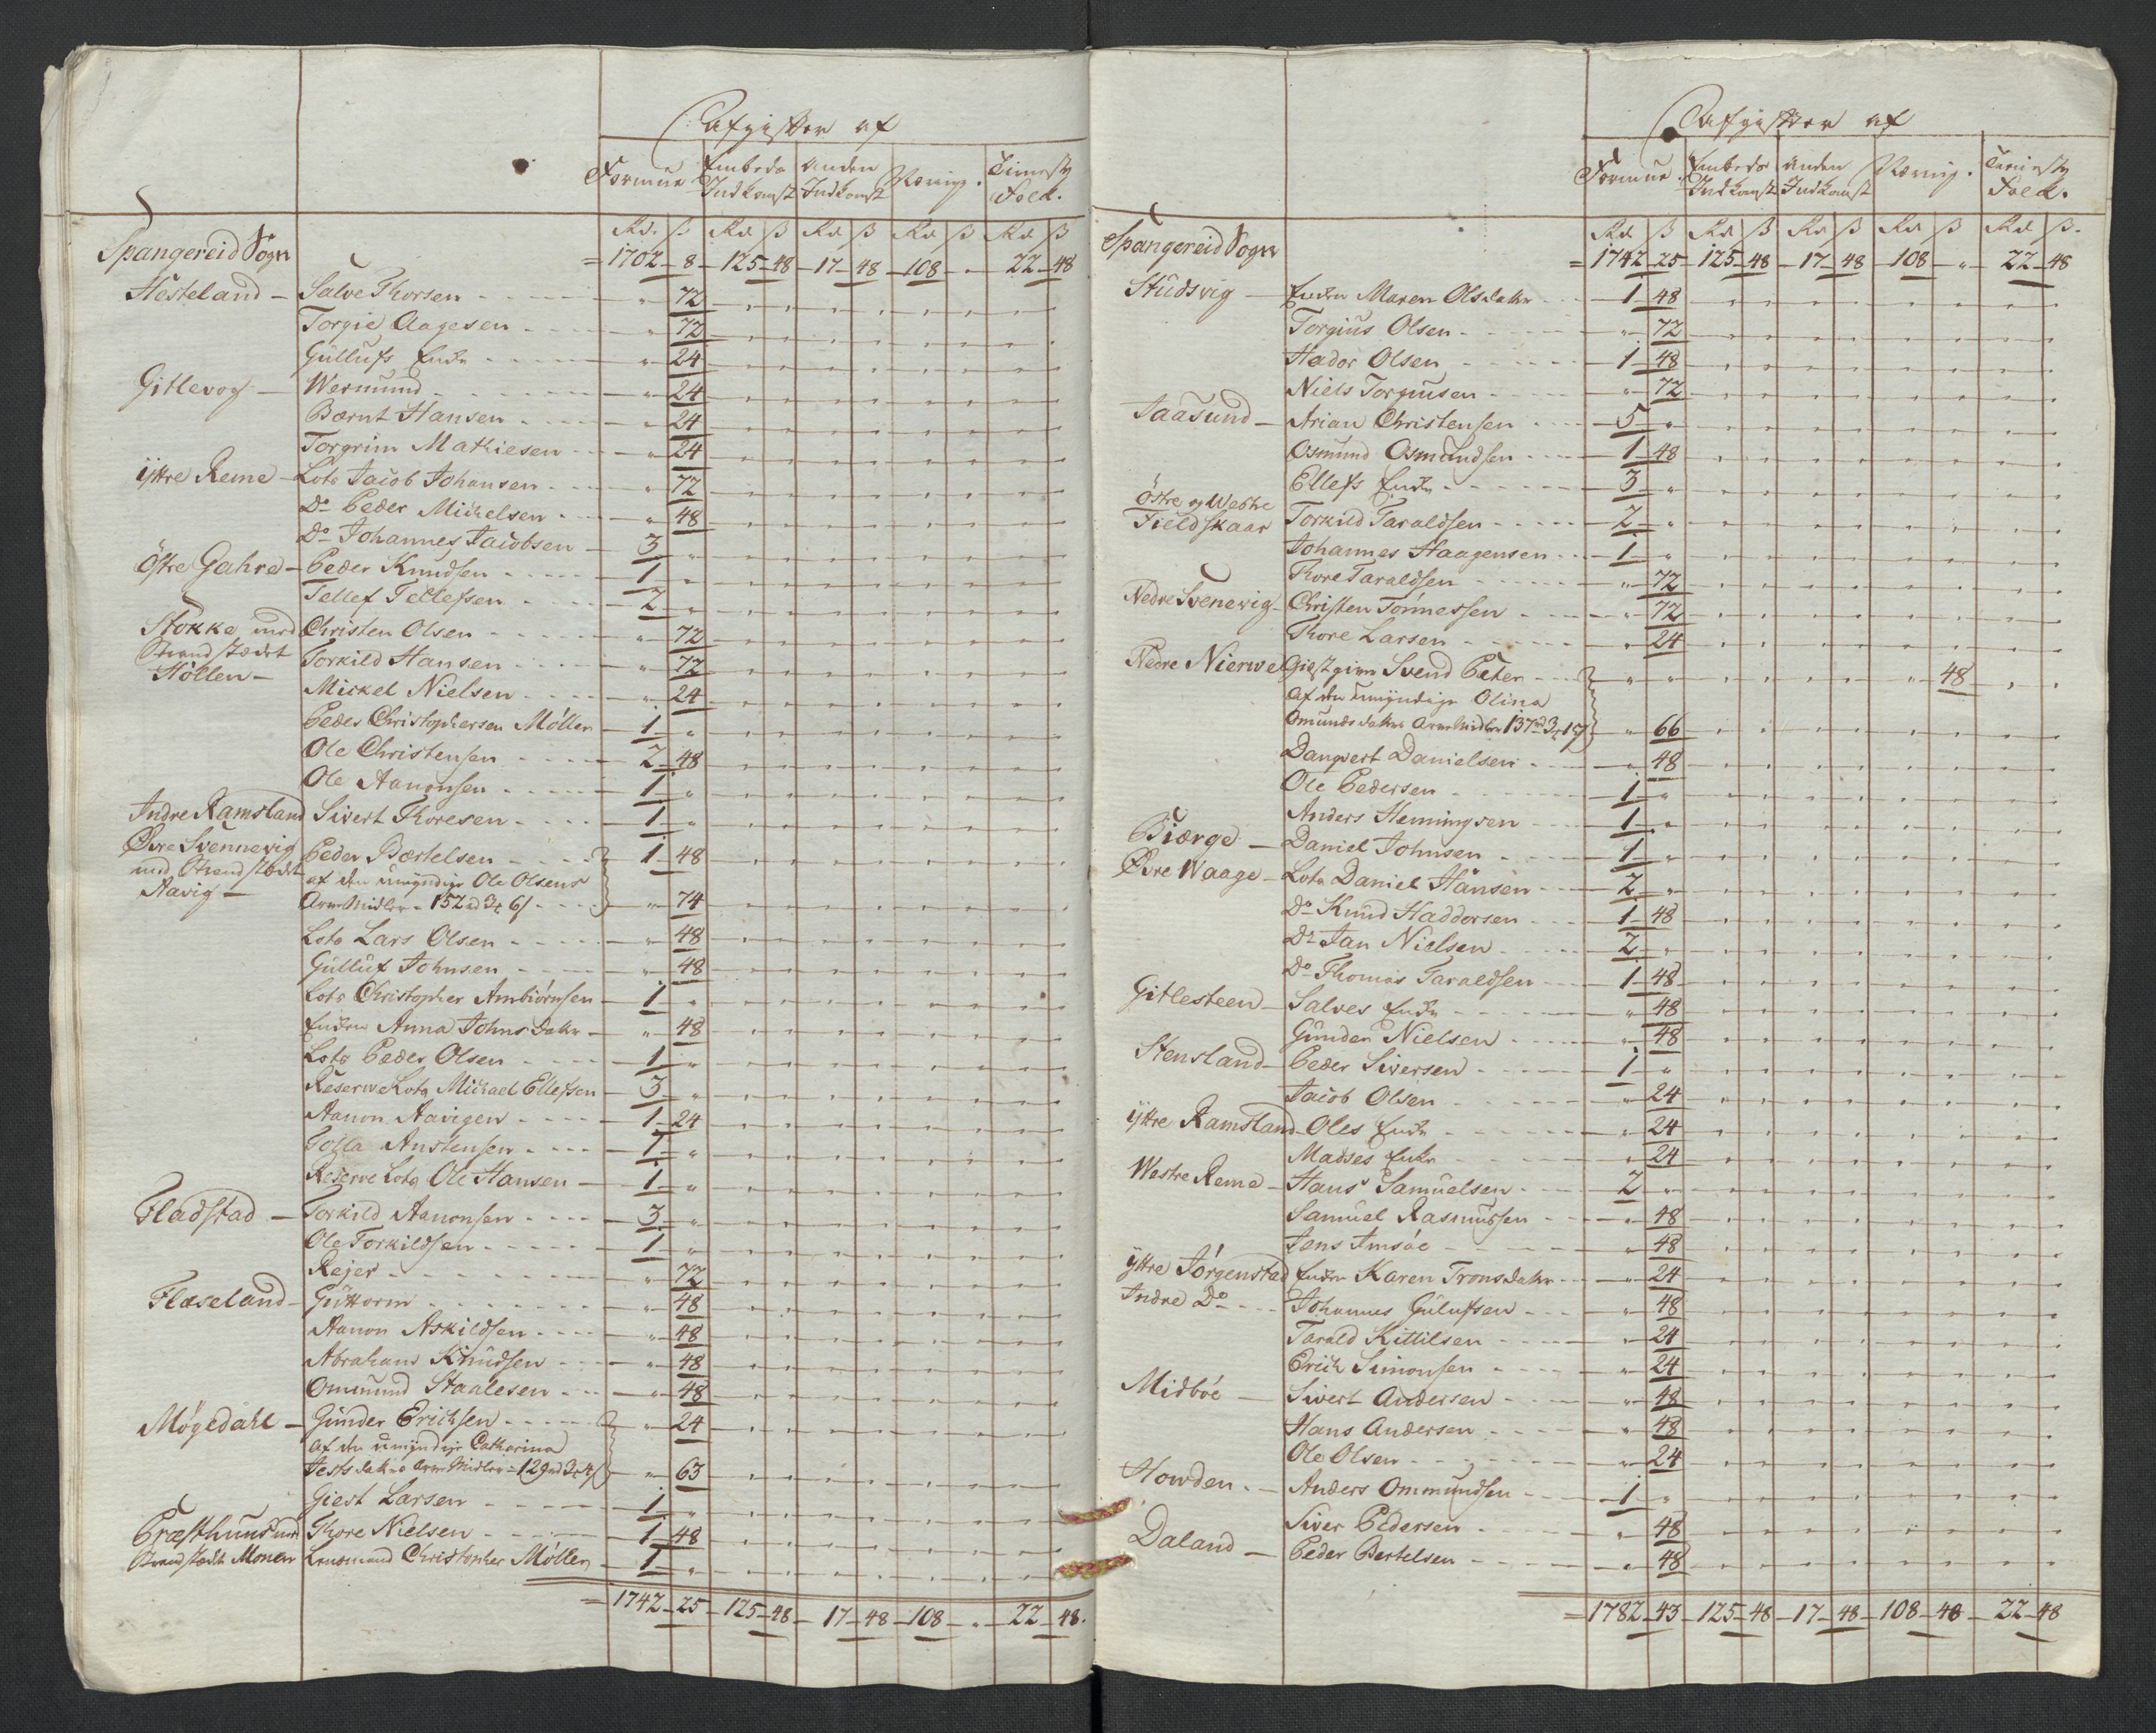 Afgifter af
Formue Embeds Indkomst Anden Indkomst Næring. Tieneste Folck.
Rd. ß Rd ß Rd ß Rd ß Rd ß
Spangereid Sogn = 1702 - 8 - 125 - 48 - 17 - 48 - 108 - " - 22 - 48
Hesteland - Salve Thorsen - " 72
Torgie Aagesen - " 72
Gullufs Enke - " 24
Gitlevog - Wermund - " 24
Bærnt Hansen - " 24
Torgrim Mathiesen - " 24
Ÿttre Reme - Lots Jacob Johansen - " 72
Do Peder Michelsen - " 48
Do Johannes Jacobsen - 3 "
Östre Gahre - Peder Knudsen - 1 "
Tellef Tellefsen - 2 "
Stokke med Christen Olsen - " 72
Strandstædet Torkild Hansen - " 72
Höllen - Mickel Nielsen - " 24
Peder Christophersen Möller - 1 "
Ole Christensen - 2 - 48
Ole Aanonsen - 1 "
Indre Ramsland Sivert Thoresen - 1 "
Øvre Svennevig Peder Bærtelsen - 1 - 48
med Strandstædet af den umÿndige Ole Olsens
Aavig - Arve Midler - 152 rd 3 ort 6 ß - " 74
Lots Lars Olsen - " 48
Gulluf Johnsen - " 48
Lots Christopher Ambiörnsen - 1 "
Enken Anna Johnsdatter - " 48
Lots Peder Olsen - 1 "
Reserve Lots Michael Ellefsen - 3 "
Aanon Aavigen - 1 - 24
Tolla Anstensen - 1 "
Reserve Lots Ole Hansen - 1 "
Fladstad - Torkild Aanonsen - 3 "
Ole Torkildsen - 1 "
Rejer - " 72
Flæseland - Guttorm - " 48
Aanon Askildsen - " 48
Abraham Knudsen - " 48
Ommund Staalesen - " 48
Møgedahl - Gunder Erichsen - " 24
af den umÿndige Catharina
datter Arve Midler = 129 rd 3 ort 4 ß - " 63
Giert Larsen - 1 "
Præsthuus med Thore Nielsen - 1 - 48
Strandstædet Monen Lensmand Christopher Möller - 1 "
= 1742 - 25 - 125 - 48 - 17 - 48 - 108 - " - 22 - 48.
Afgifter af
Formue. Embeds Indkomst Anden Indkomst Næring. Tieneste Folck.
Rd ß Rd ß Rd ß Rd ß Rd ß.
Spangereid Sogn = 1742 - 25 - 125 - 48 - 17 - 48 - 108 - " - 22 - 48
Studsvig - Enken Maren Olsdatter - 1 - 48
Torgius Olsen - " 72
Hador Olsen - 1 - 48
Niels Torgiusen - " 72
Jaasund - Arian Christensen - 5 "
Osmund Osmundsen - 1 - 48
Ellefs Enke - 3 "
Östre og Westre
Fieldskaar Torkild Taraldsen - 2 "
Johannes Haagensen - 1 "
Thore Taraldsen - " 72
Nedre Svenevig - Christen Tönnessen - " 72
Thore Larsen - " 24
Nedre Nierwe Giestgiver Svend Peter - " " 48
af den umÿndige Olina
Omundsdatters Arve Midler 137 rd 3 ort 15 ß - " 66
Dangvert Danielsen - " 48
Ole Pedersen - 1 "
Anders Hemingsen - 1 "
Biærge - Daniel Johnsen - 1 "
Øvre Waage - Lots Daniel Hansen - 2 "
Do Knud Haddorsen - 1 - 48
Do Jan Nielsen - 2 "
Do Thomas Taraldsen - 1 - 48
Gitlesteen - Salves Enke - " 48
Gunder Nielsen - " 48
Stensland - Peder Siversen - 1 "
Jacob Olsen - " 24
Ÿttre Ramsland - Oles Enke - " 24
Madses Enke - " 24
Westre Reme - Hans Samuelsen - 2 "
Samuel Rasmussen - " 48
Jens Amsöe - " 48
Ÿttre Jörgenstad Enken Karen Tronsdatter - " 24
Indre Do - Johannes Gulufsen - " 48
Tarald Kittilsen - " 24
Erich Simonsen - " 24
Midböe - Sivert Andersen - " 48
Hans Andersen - " 48
Ole Olsen - " 24
Howden. - Anders Ommundsen - 1 "
Siver Pedersen - " 48
Daland - Peder Bertelsen - " 48
= 1782 - 43 - 125 - 48 - 17 - 48 - 108 - 48 - 22 - 48